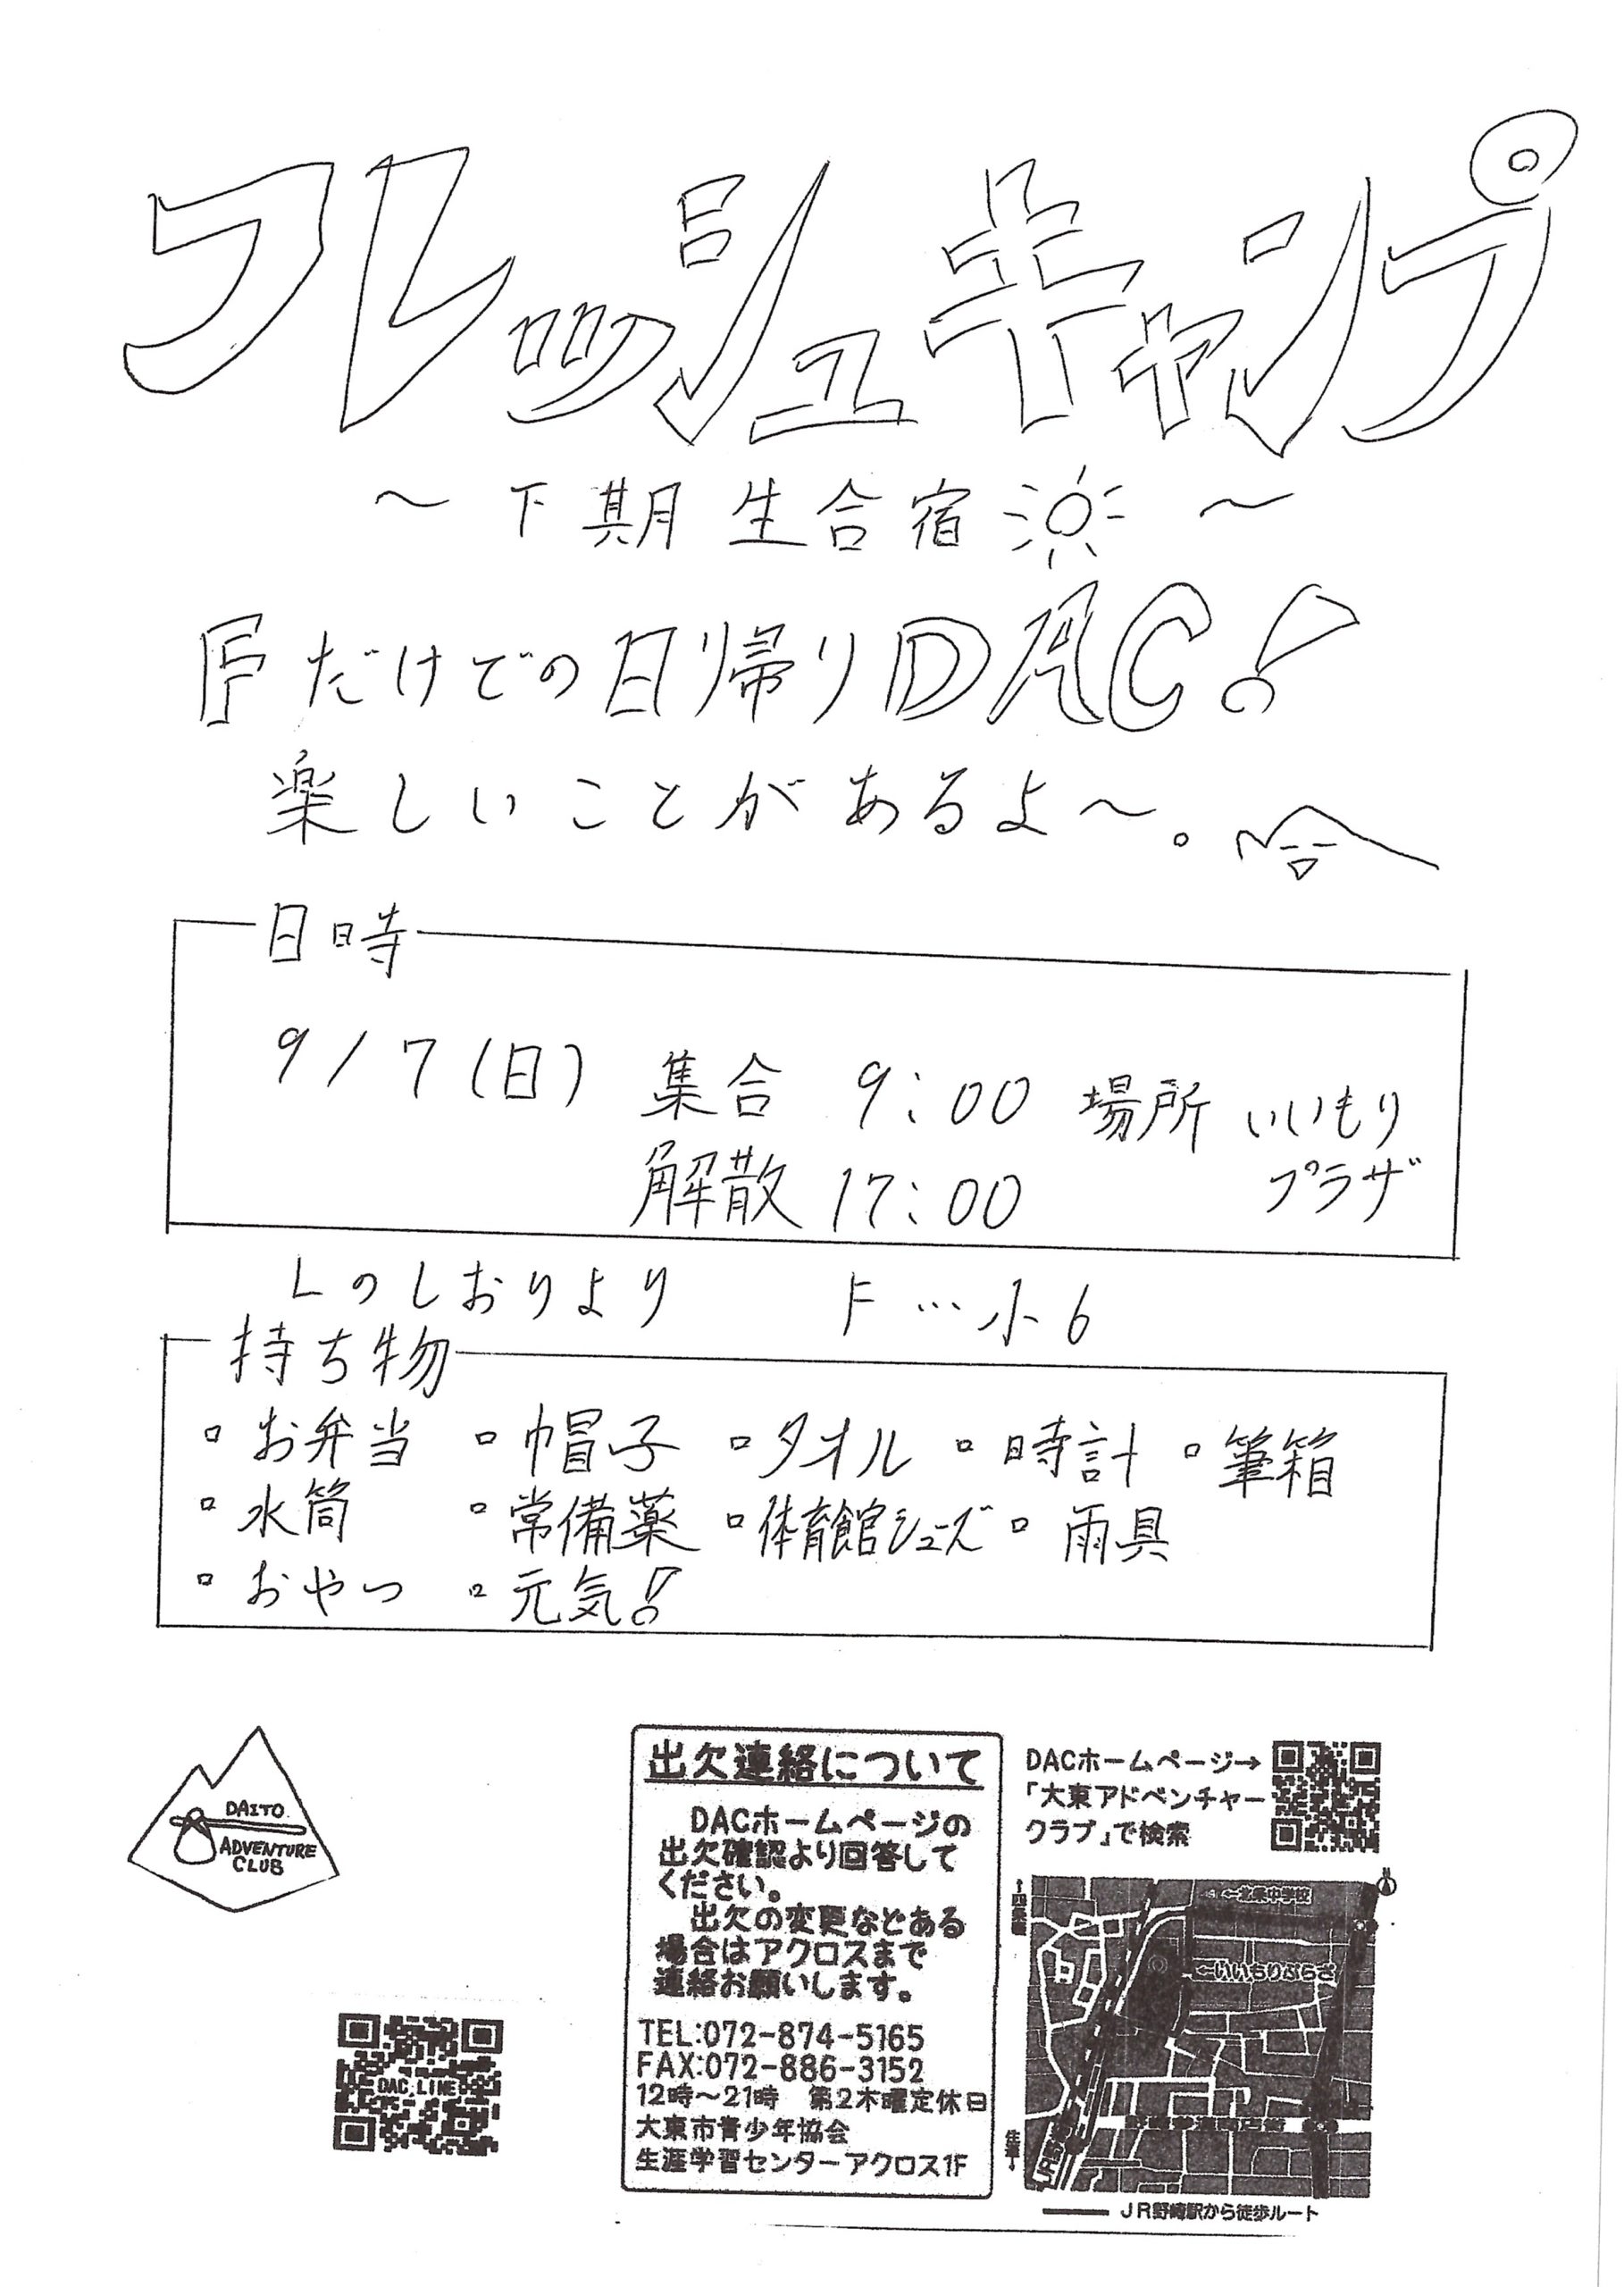 フレッシュキャンプ
～下期生合宿～
Fだけでの日帰りDAC!
楽しいことがあるよ～。
日時
9/7(日) 集合 9:00 場所 いいもり
解散 17:00 プラザ
Lのしおりより F…小6
持ち物
・お弁当 ・帽子 ・タオル ・時計 ・筆箱
・水筒 ・常備薬 ・体育館シューズ ・雨具
・おやつ ・元気!
DAITO
ADVENTURE
CLUB
DAC LINE
出欠連絡について
DACホームページの
出欠確認より回答して
ください。
出欠の変更などある
場合はアクロスまで
連絡お願いします。
TEL:072-874-5165
FAX:072-886-3152
12時～21時 第2木曜定休日
大東市青少年協会
生涯学習センターアクロス1F
DACホームページ→
「大東アドベンチャー
クラブ」で検索
←北条中学校
←いいもりぷらざ
JR野崎駅から徒歩ルート